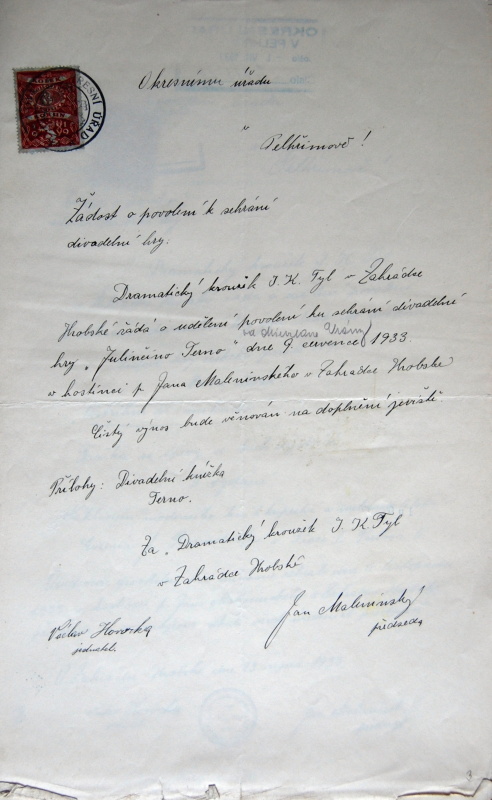 OKRESNÍ ÚŘAD
Okresnímu úřadu
v
Pelhřimově!
Žádost o povolení k sehrání
divadelní hry.
Dramatický kroužek J. K. Tyl v Zahrádce
Hrobské žádá o udělení povolení ku sehrání divadelní
hry „Julinčino Terno" dne 9. července 1933
v hostinci p. Jana Maleninského v Zahrádce Hrobské
Čistý výnos bude věnován na doplnění jeviště.
Přílohy: Divadelní knížka
Terno.
Za „Dramatický kroužek J. K. Tyl
v Zahrádce Hrobské
Jan Maleninský
předseda
Václav Hovorka
jednatel.